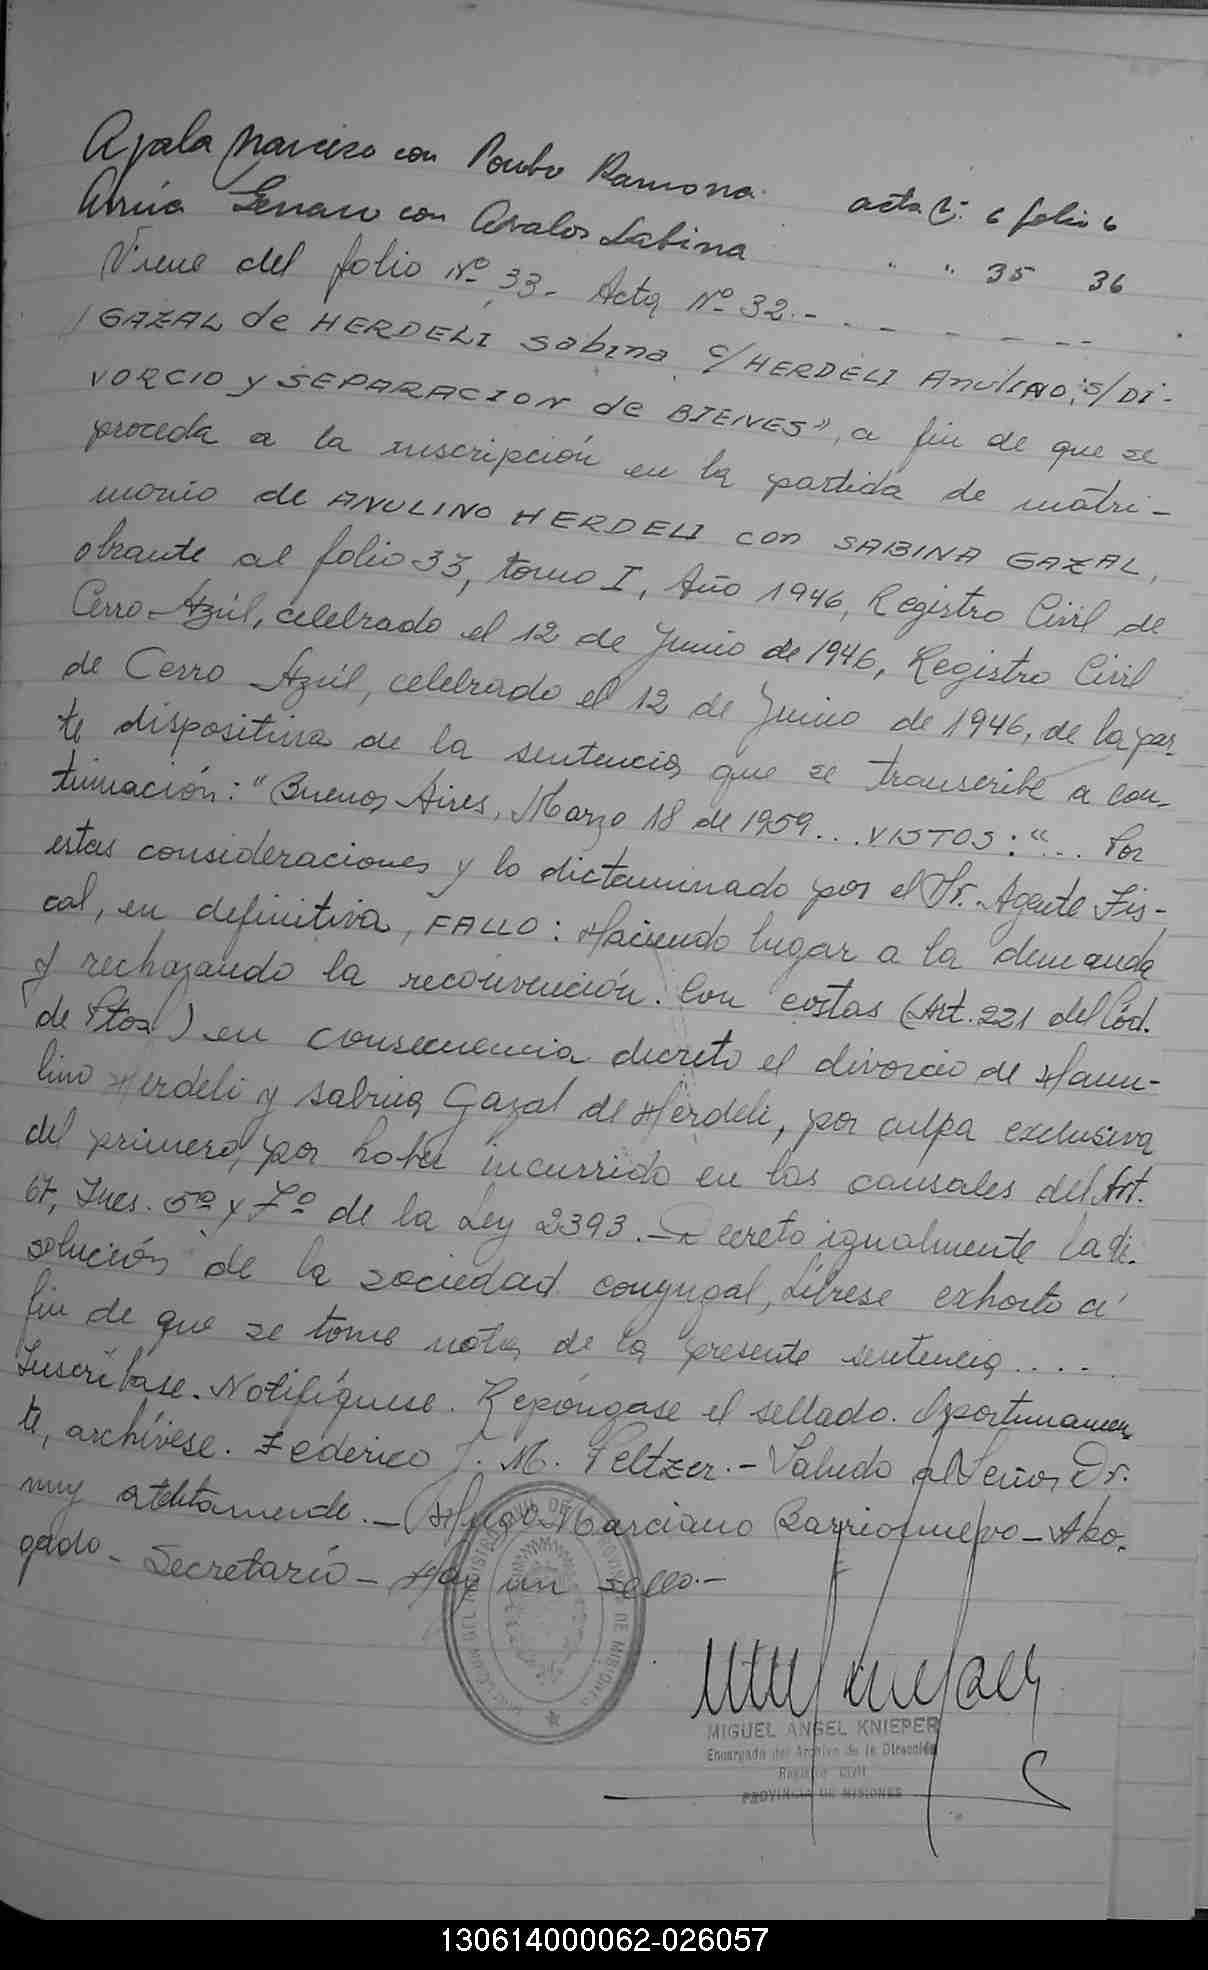 Ayala Narciso con Pombo Ramona acta Nº 6 folio 6
Arrúa Genaro con Avalos Sabina " " 35 36
Viene del folio Nº 33- Acta Nº 32.- - - - - - --
GAZAL de HERDELI Sabina c/HERDELI ANULINO, s/DI-
VORCIO y SEPARACION de BIENES", a fin de que se
proceda a la inscripción en la partida de matri-
monio de ANULINO HERDELI con SABINA GAZAL,
obrante al folio 33, tomo I, Año 1946, Registro Civil de
Cerro Azúl, celebrado el 12 de Junio de 1946, Registro Civil
de Cerro Azúl, celebrado el 12 de Junio de 1946, de la par-
te dispositiva de la sentencia que se transcribe a con-
tinuación: "Buenos Aires, Marzo 18 de 1959... VISTOS: "... Por
estas consideraciones y lo dictaminado por el Sr. Agente Fis-
cal, en definitiva, FALLO: Haciendo lugar a la demanda
y rechazando la reconvención. Con costas (Art. 221 del Cód.
de Ptos) en consecuencia decreto el divorcio de Hanu-
lino Herdeli y Sabina Gazal de Herdeli, por culpa exclusiva
del primero, por haber incurrido en las causales del Art.
67, Incs. 5º y 7º de la Ley 2393.- Decreto igualmente la di-
solución de la sociedad conyugal, Líbrese exhorto a
fin de que se tome nota de la presente sentencia....
Inscríbase. Notifíquese. Repóngase el sellado. Oportunamen-
te, archívese. Federico J. M. Peltzer.- Saludo al Señor Dr.
muy atentamente.- Hugo Marciano Barrionuevo - Abo-
gado - Secretario - Hay un sello.-
MIGUEL ANGEL KNIEPER
Encargado del Archivo de la Dirección
Registro Civil
PROVINCIA DE MISIONES
130614000062-026057